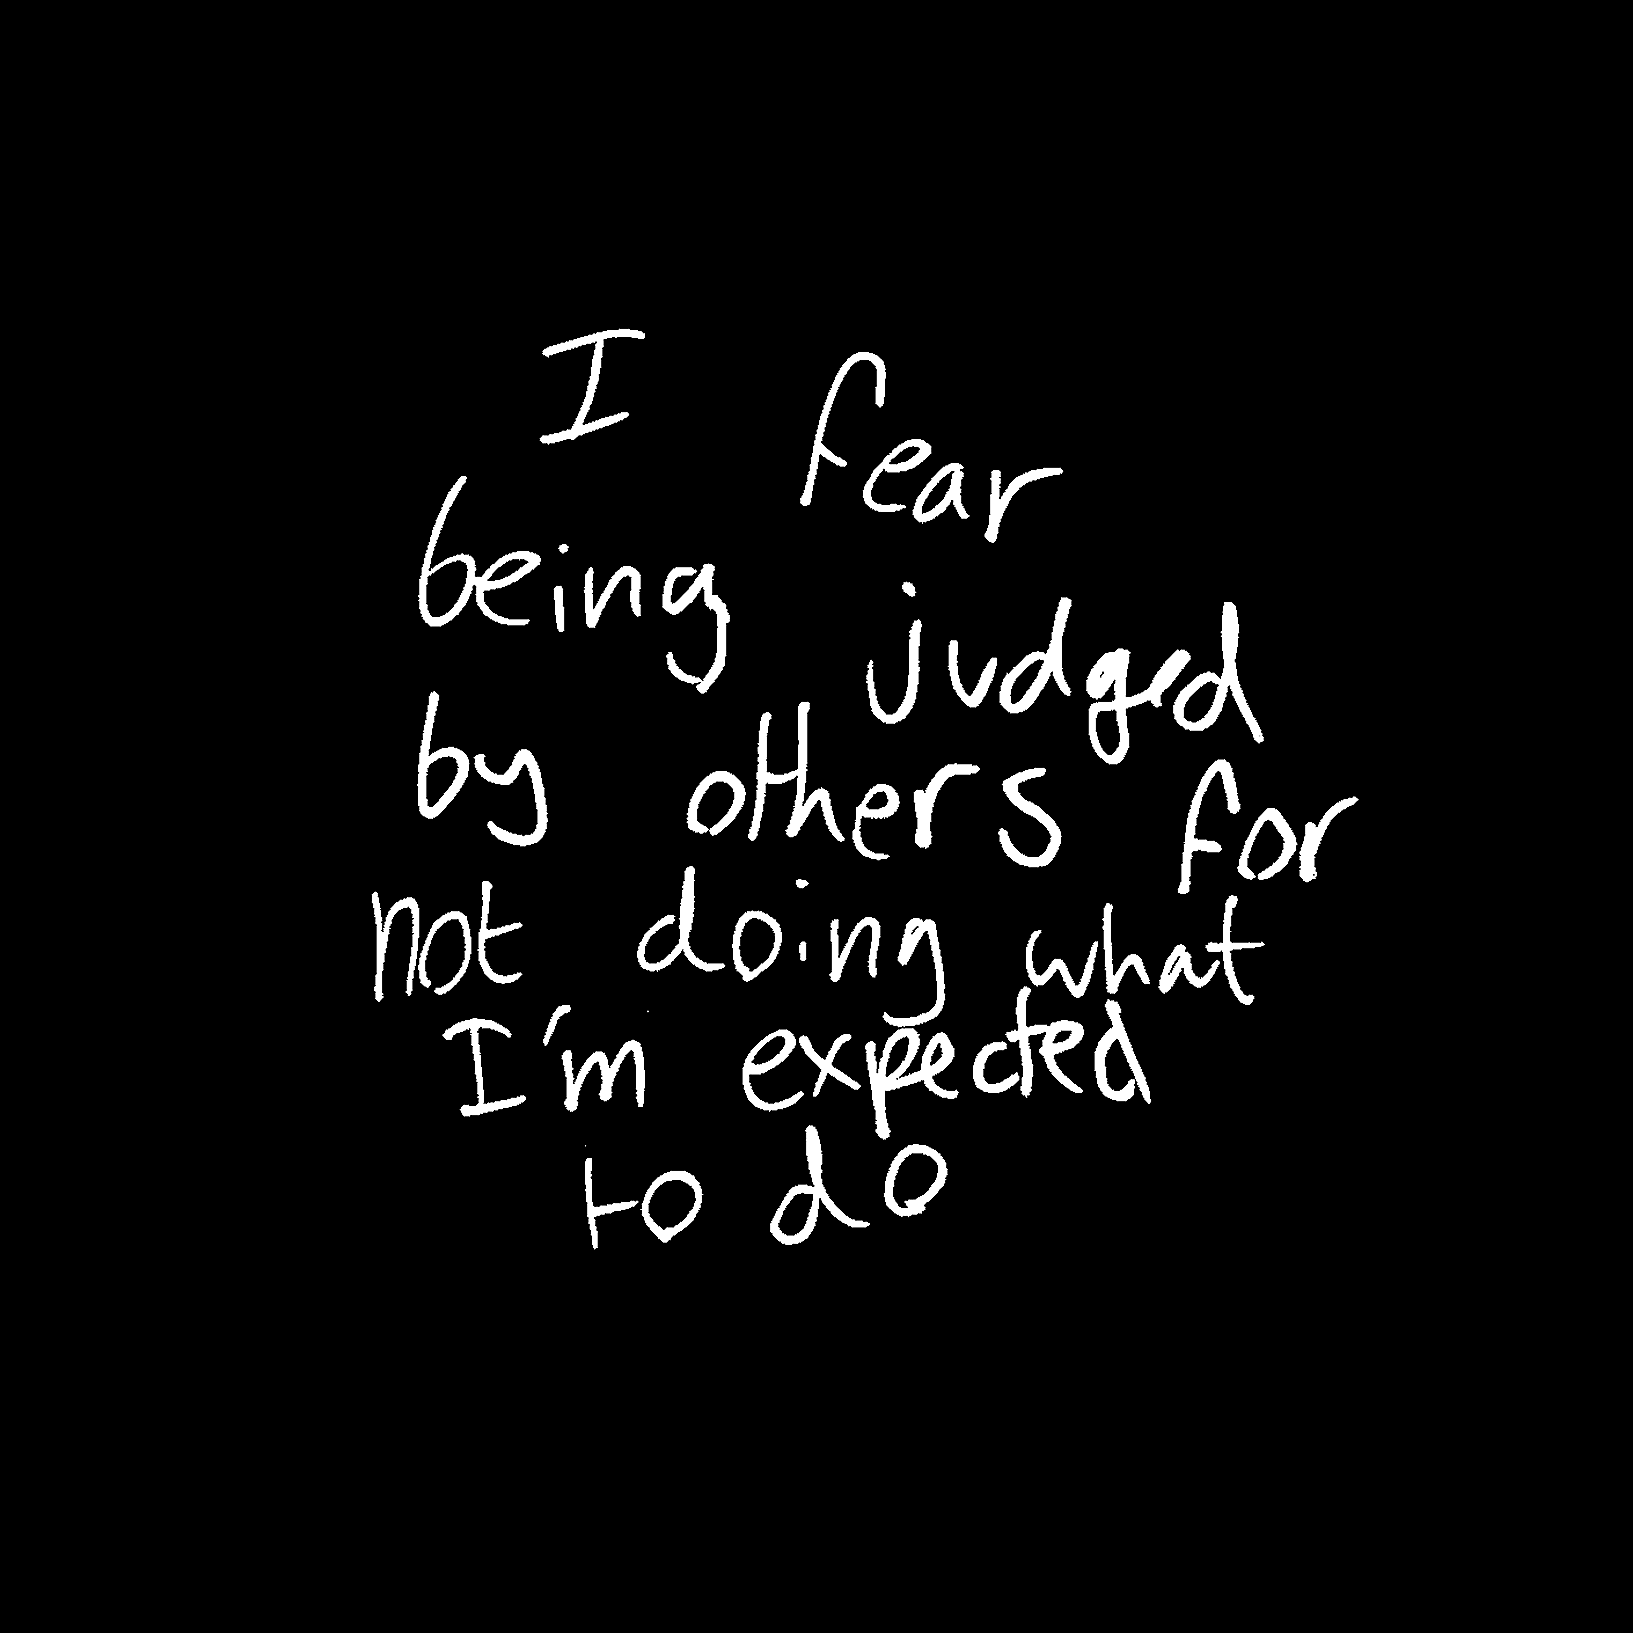 I fear
being judged
by others for
not doing what
I'm expected
to do